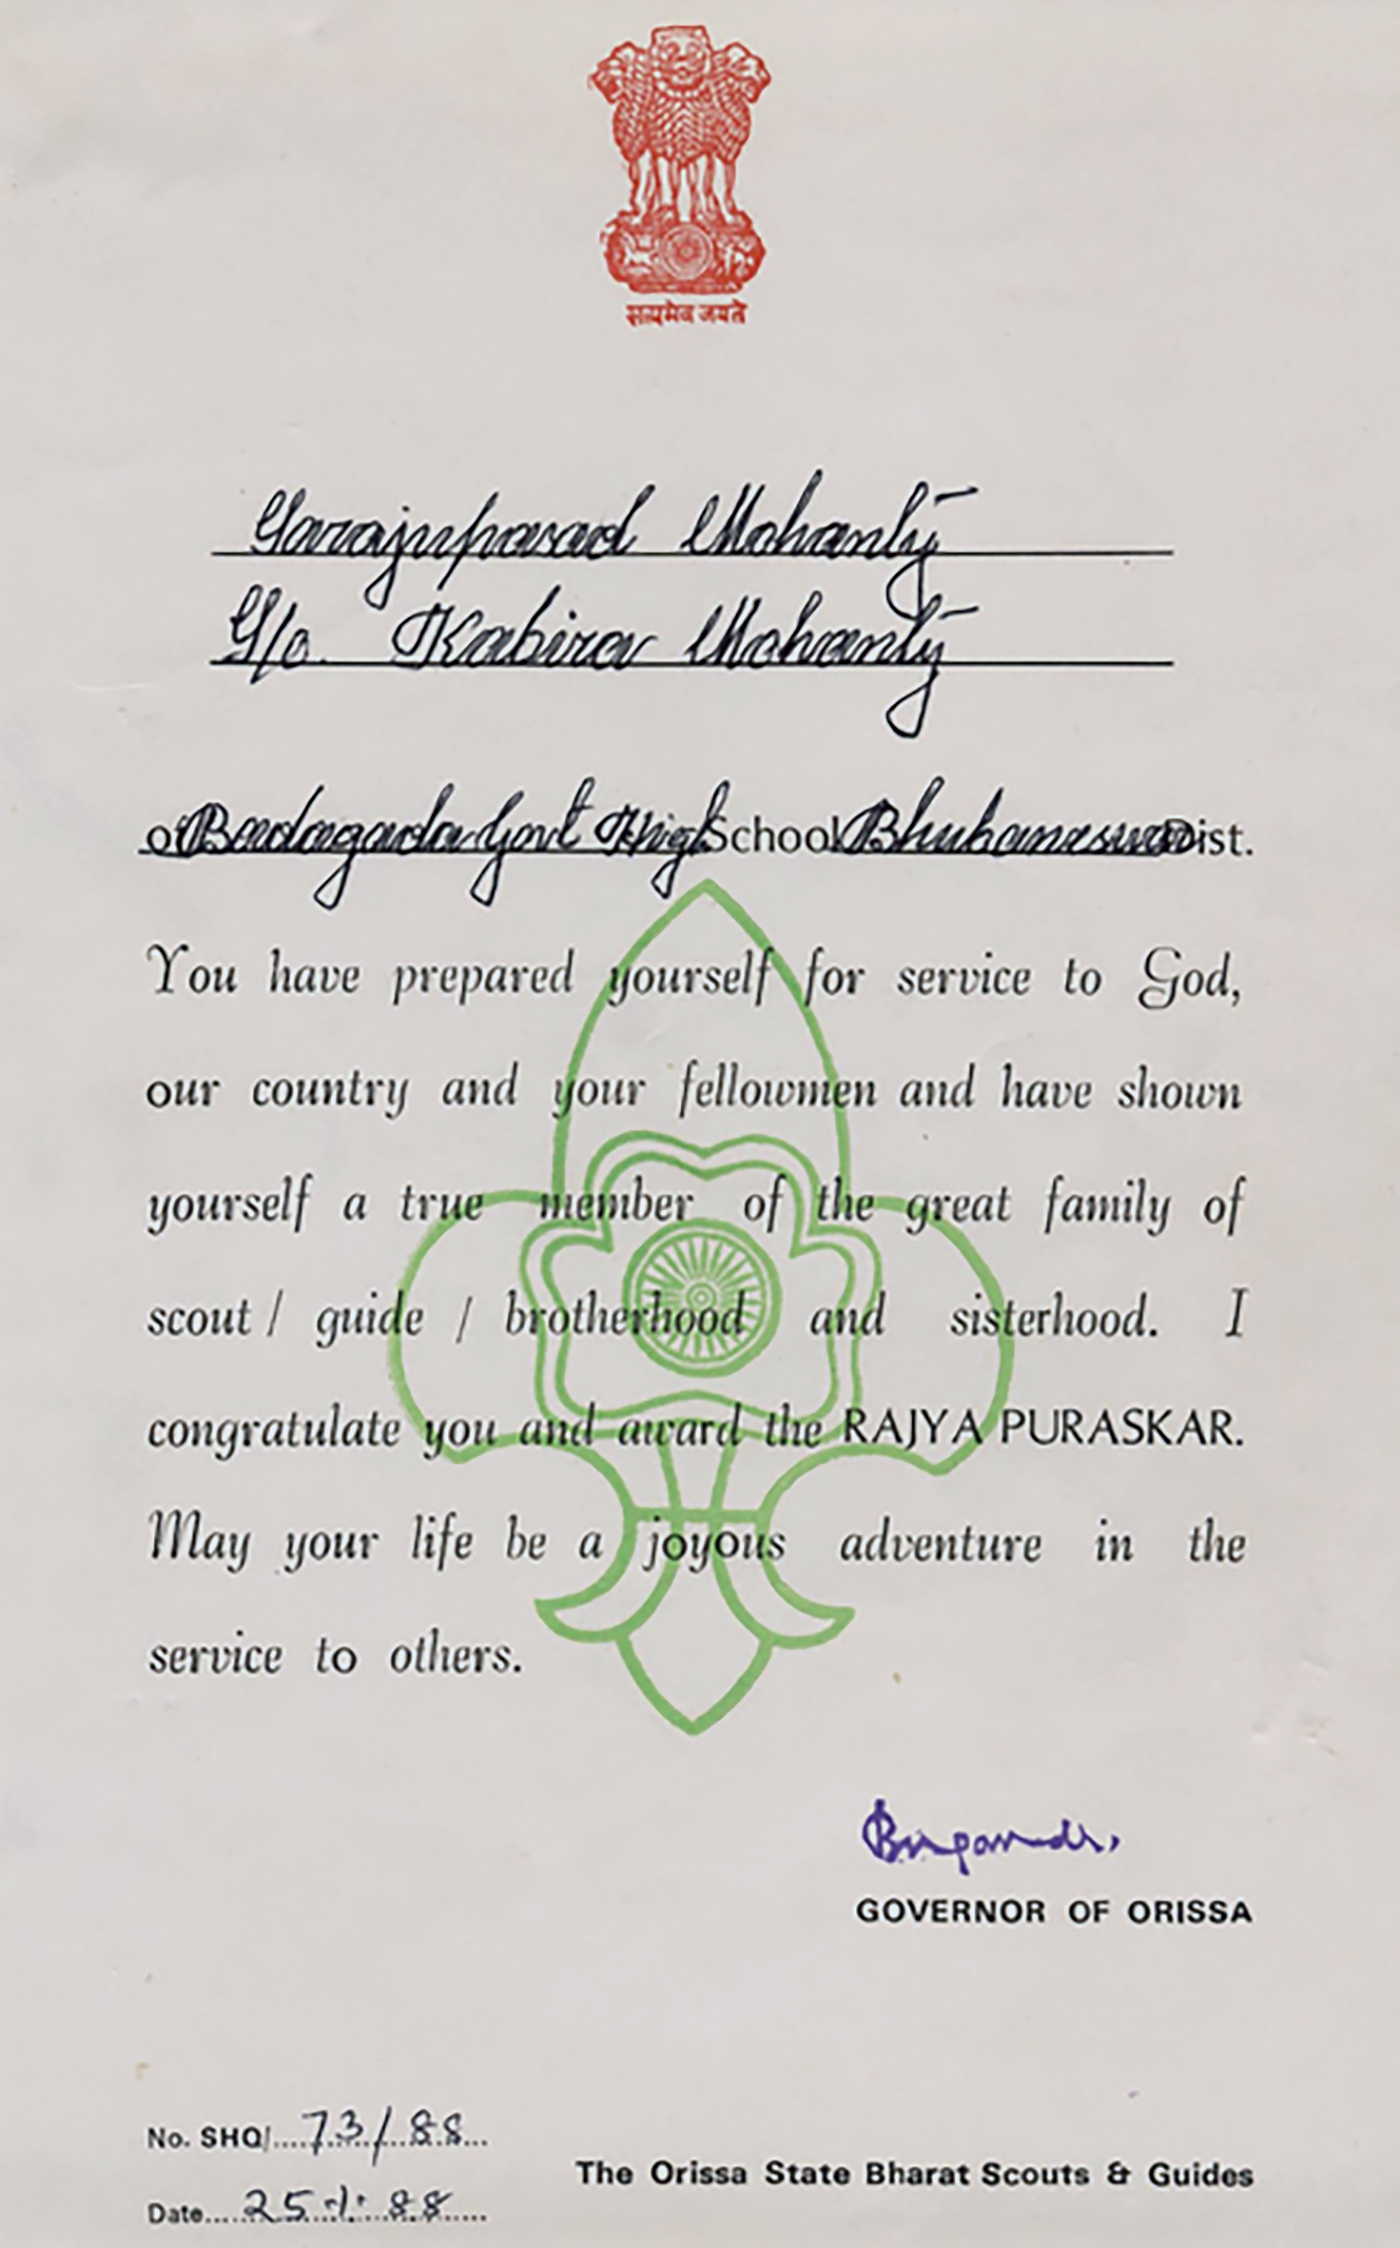 सत्यमेव जयते
Sarajuprasad Mohanty
S/o. Kabira Mohanty
of Badagada Govt High School Bhubaneswar Dist.
You have prepared yourself for service to God,
our country and your fellowmen and have shown
yourself a true member of the great family of
scout / guide / brotherhood and sisterhood. I
congratulate you and award the RAJYA PURASKAR.
May your life be a joyous adventure in the
service to others.
GOVERNOR OF ORISSA
No. SHQ/....73/88...
The Orissa State Bharat Scouts & Guides
Date....25.1.88.....